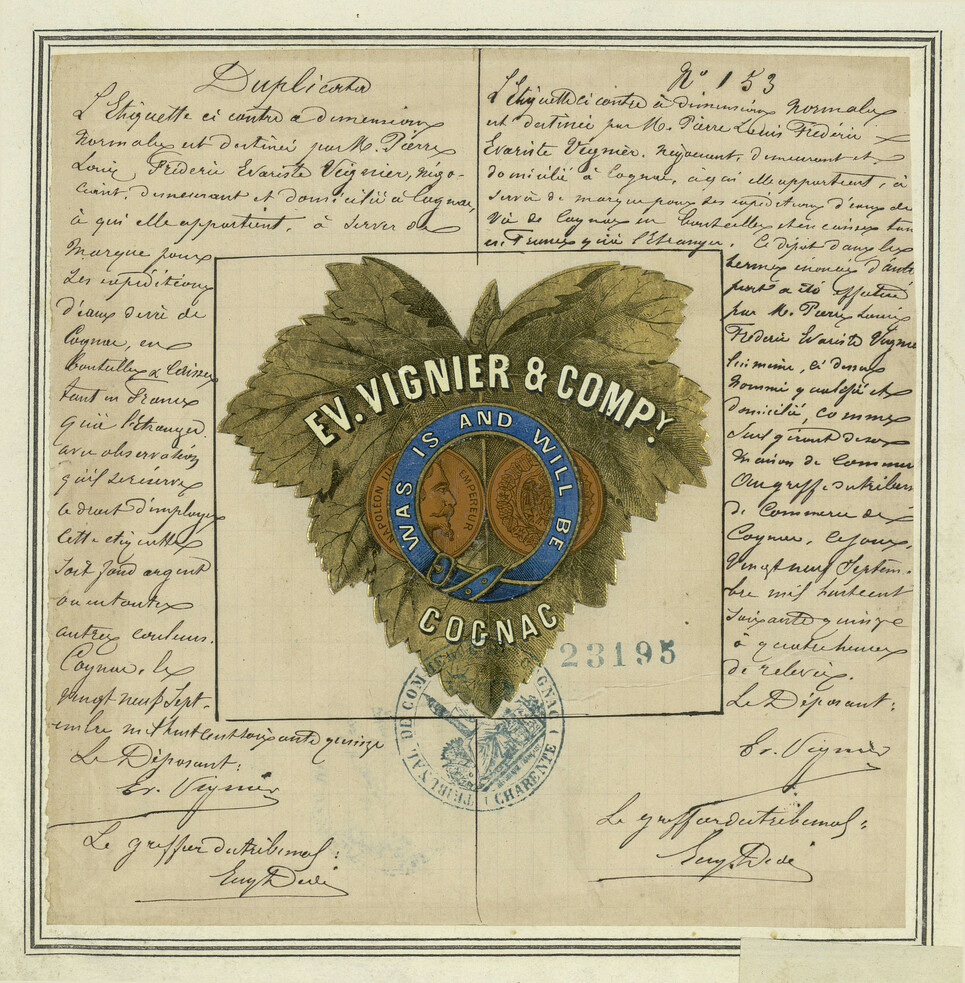 Duplicata
L'Etiquette ci contre à dimensions
normales est destinée par M. Pierre
Louis Frédéric Evariste Vignier, négo-
ciant, demeurant et domicilié à Cognac,
à qui elle appartient, à servir de
marque pour
ses expéditions
d'eaux de vie de
Cognac, en
bouteilles & caisses
tant en France
qu'à l'étranger.
avec observation
qu'il se réserve
le droit d'employer
cette étiquette
soit fond argent
ou en toutes
autres couleurs.
Cognac, le
vingt neuf Sept-
embre mil huit cent soixante quinze
Le Déposant:
Ev. Vignier
Le greffier du tribunal:
Eug Dedé
N° 153
L'Etiquette ci contre à dimensions normales
est destinée par M. Pierre Louis Frédéric
Evariste Vignier, négociant, demeurant et
domicilié à Cognac, à qui elle appartient, à
servir de marque pour ses expéditions d'eaux de
vie de Cognac en bouteilles et en caisses tant
en France qu'à l'Etranger. Ce dépôt dans les
termes énoncés d'autre
part a été effectué
par M. Pierre Louis
Frédéric Evariste Vignier
lui même, ci dessus
nommé qualifié et
domicilié, comme
seul gérant de sa
maison de Commerce
Au greffe du tribunal
de Commerce de
Cognac, le jour,
vingt neuf Septem-
bre mil huit cent
soixante quinze
à quatre heures
de relevée.
Le Déposant:
Ev. Vignier
Le greffier du tribunal:
Eug Dedé
EV. VIGNIER & COMPY.
WAS IS AND WILL BE
NAPOLÉON III EMPEREUR
COGNAC
23195
TRIBUNAL DE COMMERCE COGNAC (CHARENTE)